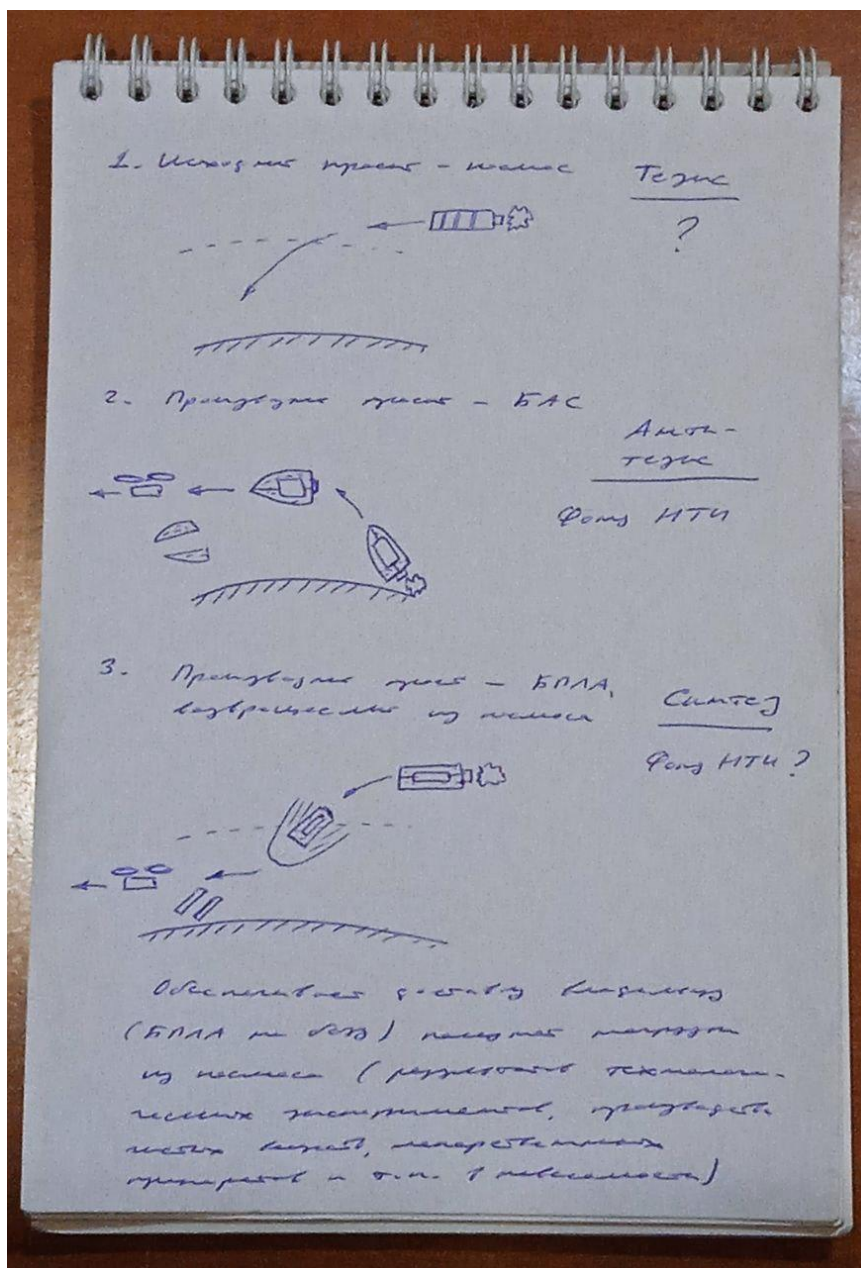 1. Исходный проект - космос
Тезис
?
2. Производный проект - БАС
Анти-
тезис
Фонд НТИ
3. Производный проект - БПЛА,
возвращаемый из космоса
Синтез
Фонд НТИ?
Обеспечивает доставку владельцу
(БПЛА на базу) полезной нагрузки
из космоса (результатов технологи-
ческих экспериментов, производства
чистых веществ, лекарственных
препаратов и т.п. в невесомости)